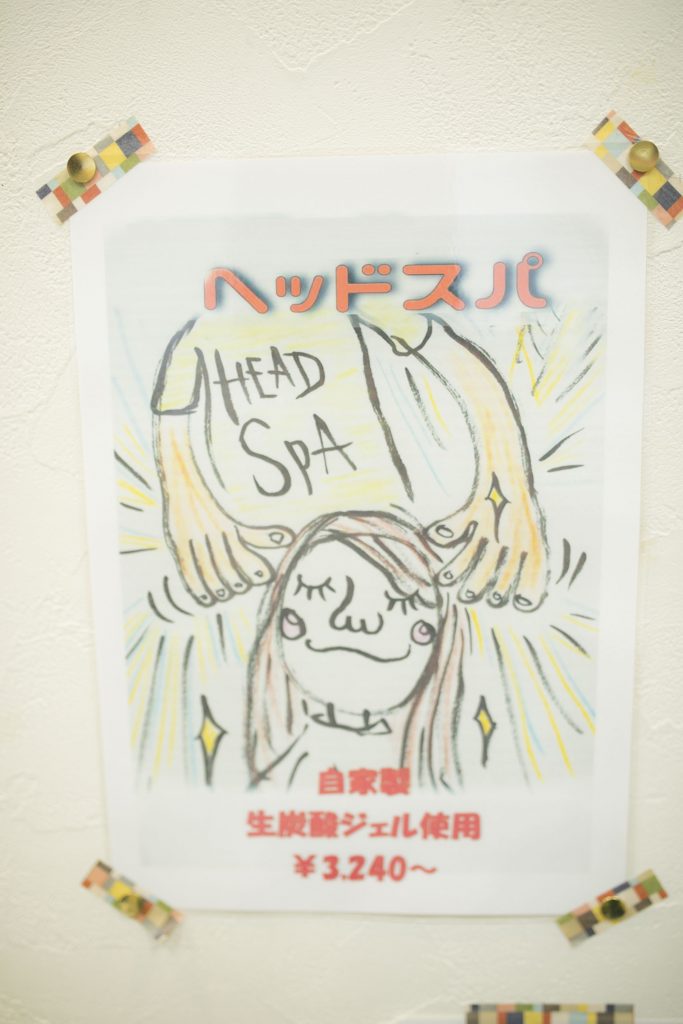 ヘッドスパ
HEAD
SPA
自家製
生炭酸ジェル使用
¥3,240～